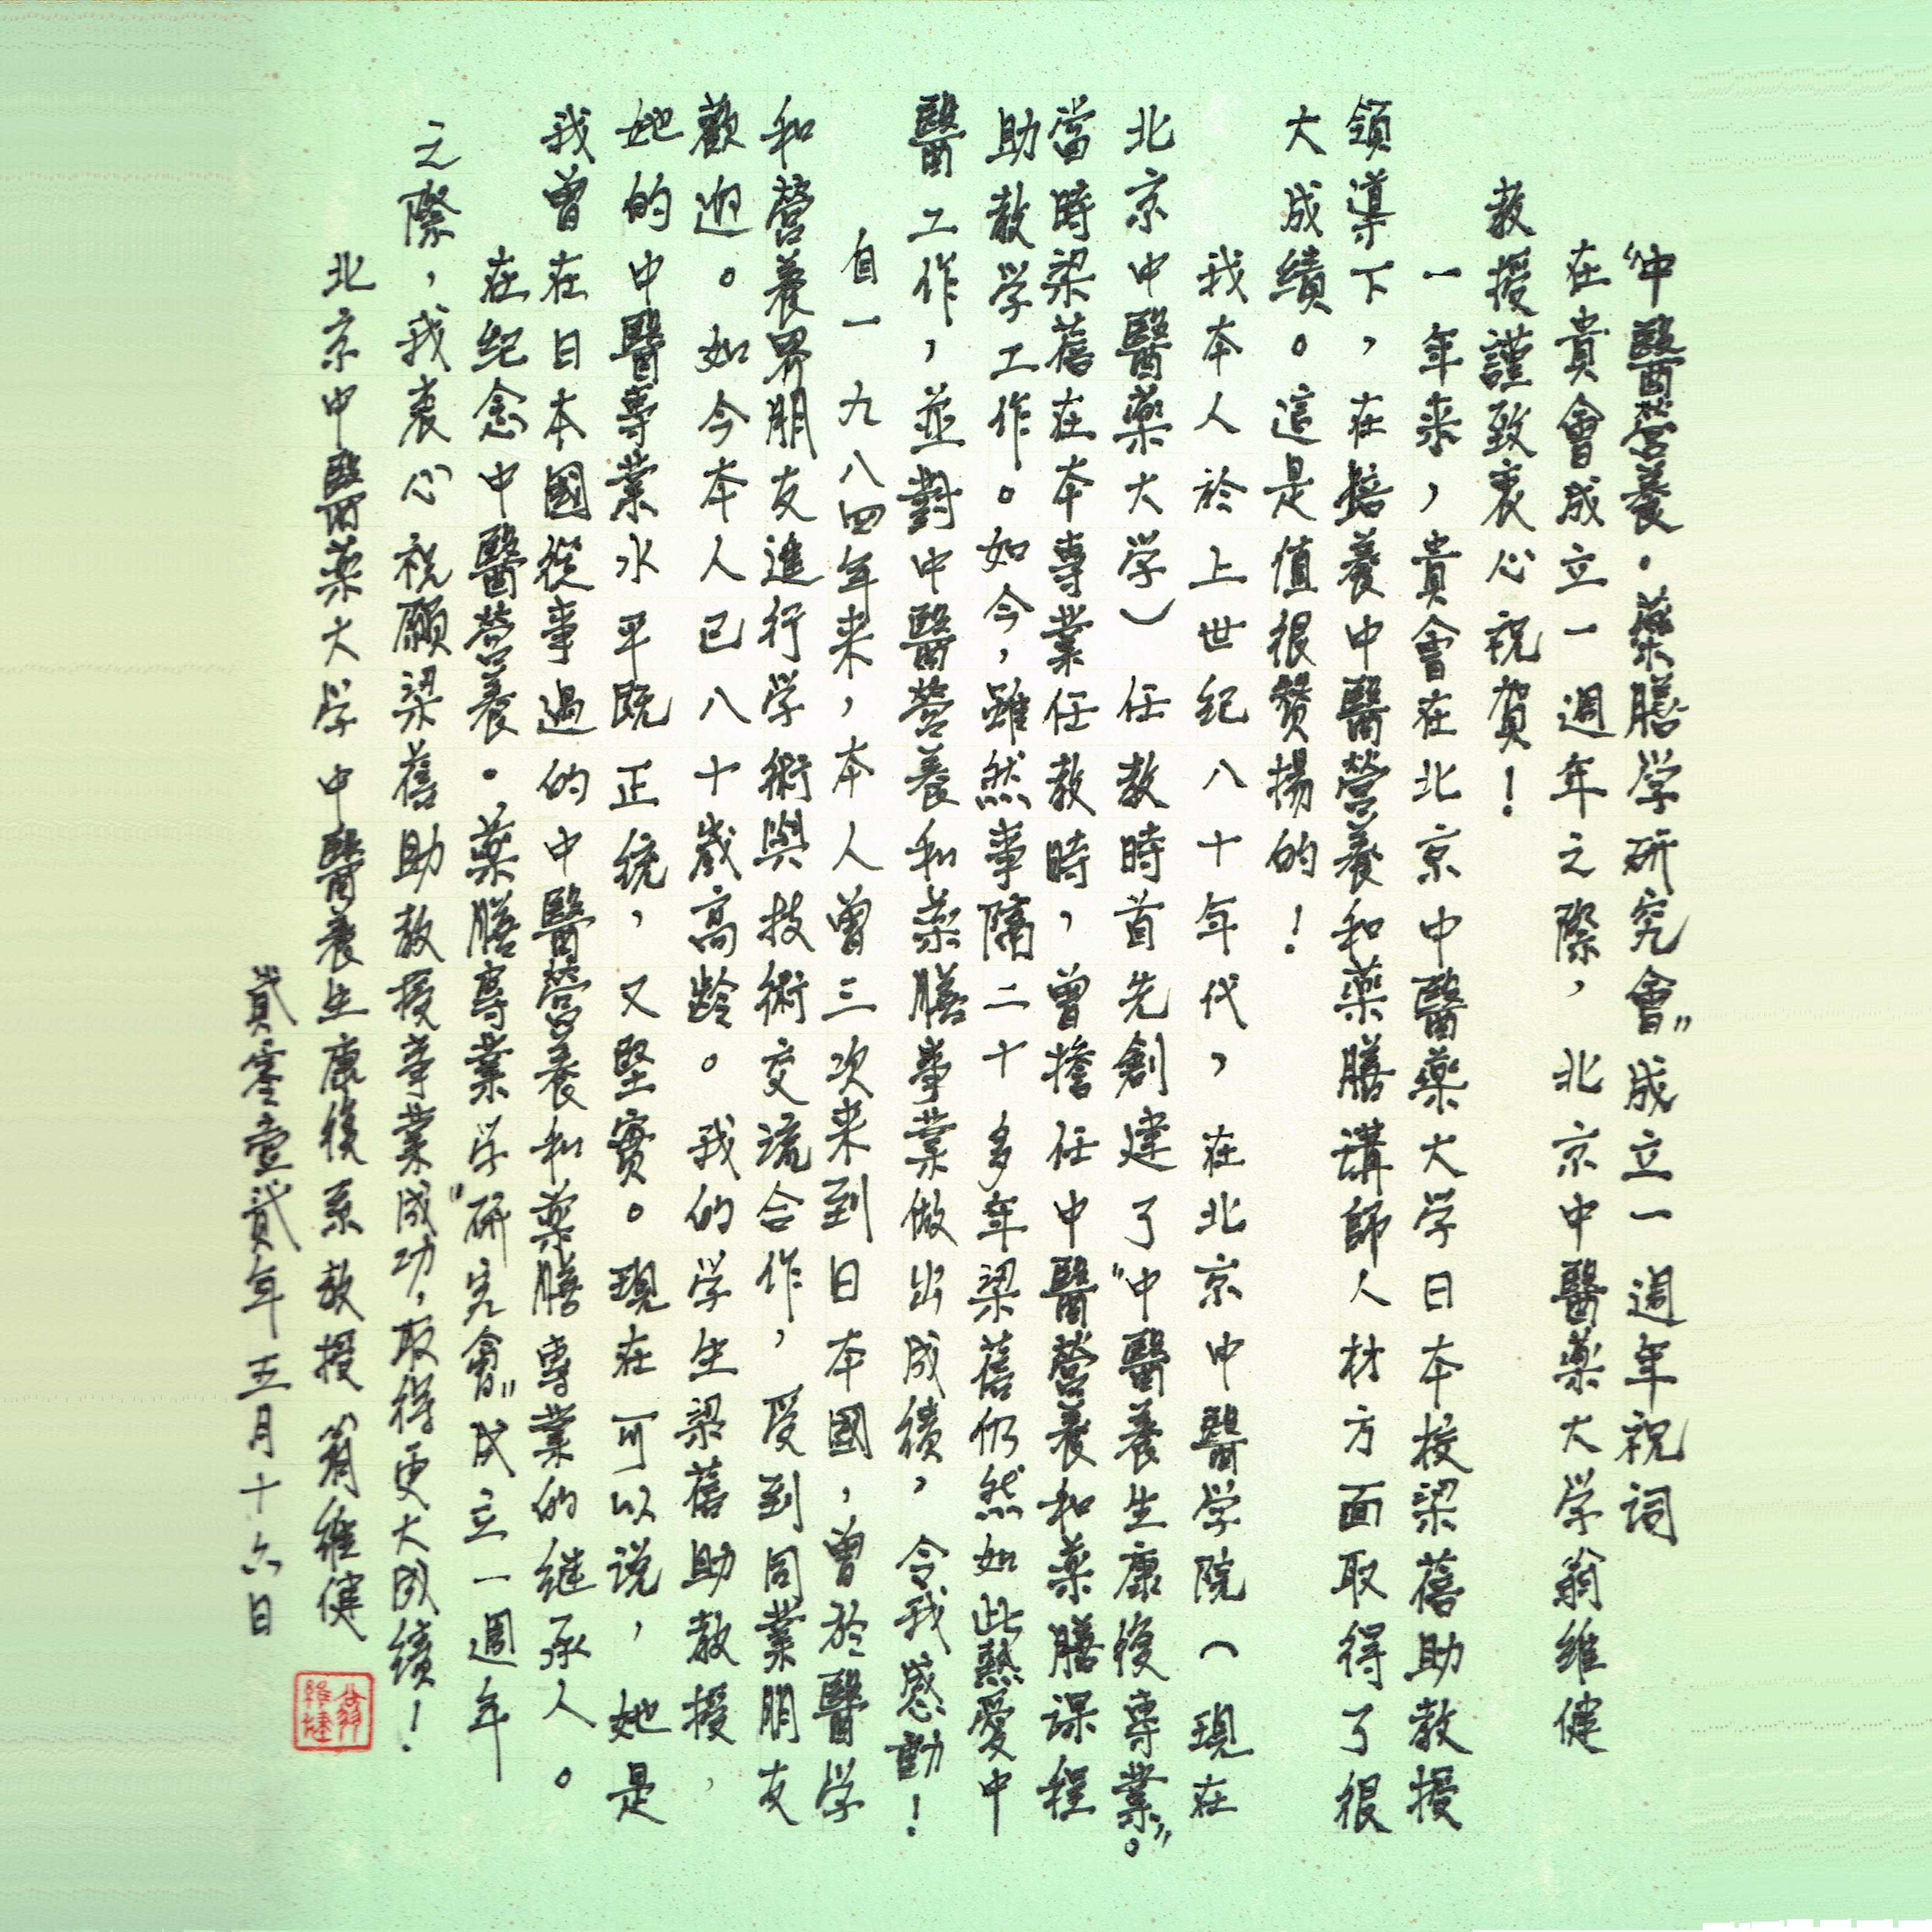 “中醫營養·藥膳学研究會”成立一週年祝詞
在貴會成立一週年之際，北京中醫藥大学翁維健
教授謹致衷心祝賀！
一年来，貴會在北京中醫藥大学日本校梁蓓助教授
領導下，在培養中醫營養和藥膳講師人材方面取得了很
大成績。這是值很贊揚的！
我本人於上世纪八十年代，在北京中醫学院（現在
北京中醫藥大学）任教時首先創建了“中醫養生康復專業”。
當時梁蓓在本專業任教時，曾擔任中醫營養和藥膳课程
助教学工作。如今，雖然事隔二十多年梁蓓仍然如此熱愛中
醫工作，並對中醫營養和藥膳事業做出成績，令我感動！
自一九八四年来，本人曾三次来到日本國，曾於醫学
和營養界朋友進行学術與技術交流合作，受到同業朋友
歡迎。如今本人已八十歲高龄。我的学生梁蓓助教授，
她的中醫專業水平既正统，又堅實。現在可以说，她是
我曾在日本國從事過的中醫營養和藥膳專業的继承人。
在纪念中醫營養·藥膳專業学“研究會”成立一週年
之際，我衷心祝願梁蓓助教授事業成功，取得更大成績！
北京中醫藥大学中醫養生康復系教授 翁維健
貳零壹貳年五月十六日
翁維健